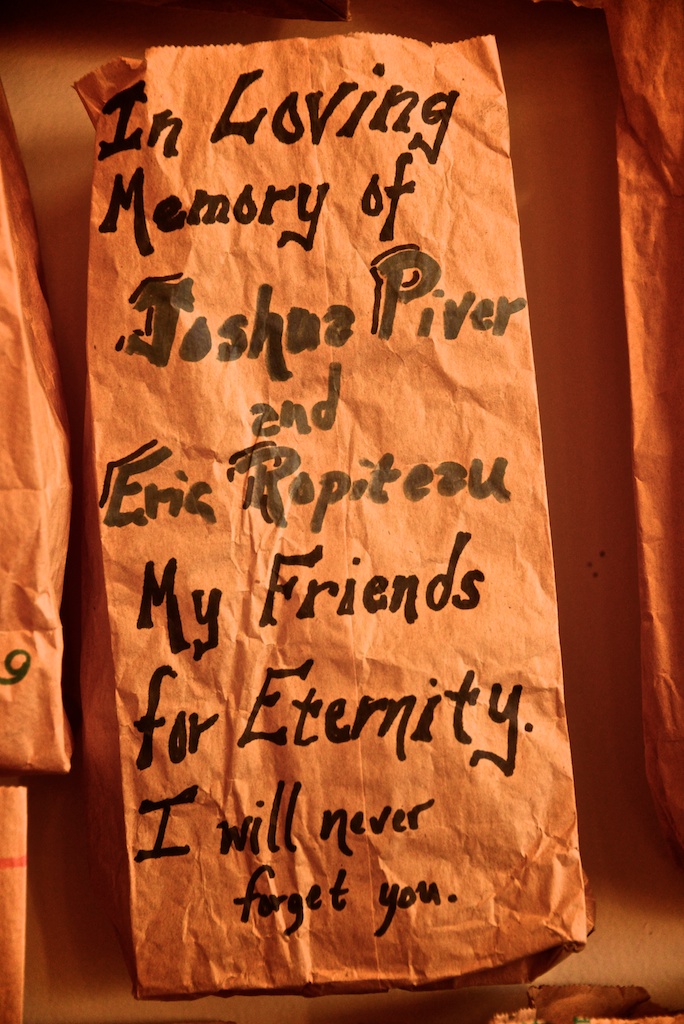 In Loving
Memory of
Joshua Piver
and
Eric Ropiteau
My Friends
for Eternity.
I will never
forget you.
9